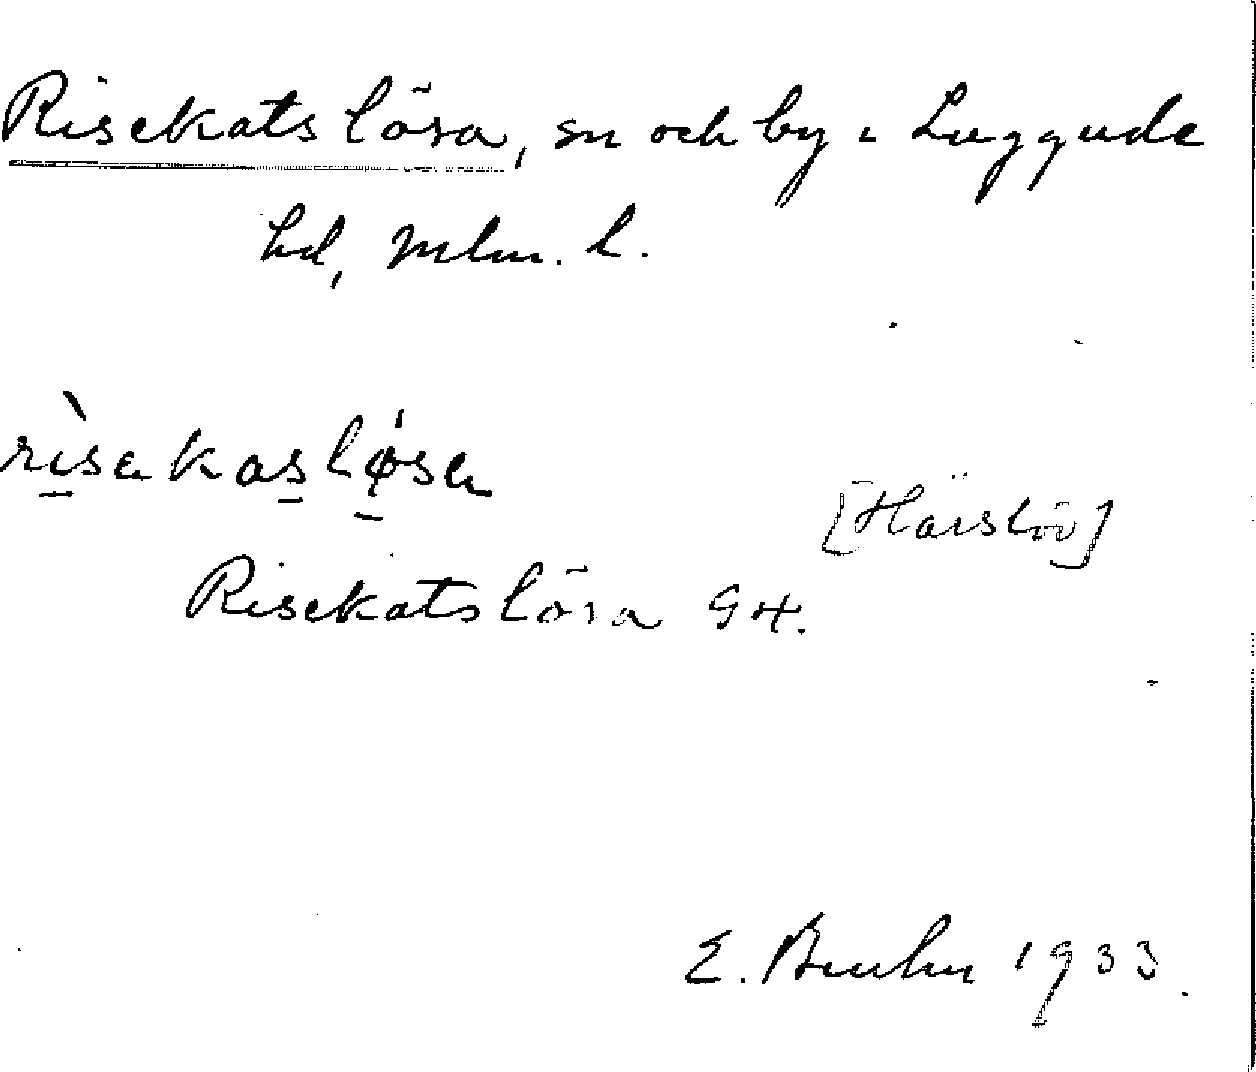 Risekatslösa, sn och by i Luggude
hd, Mlm. l.
rìsakasløsa
[Härslöv]
Risekatslösa GK.
E. Bruhn 1933.